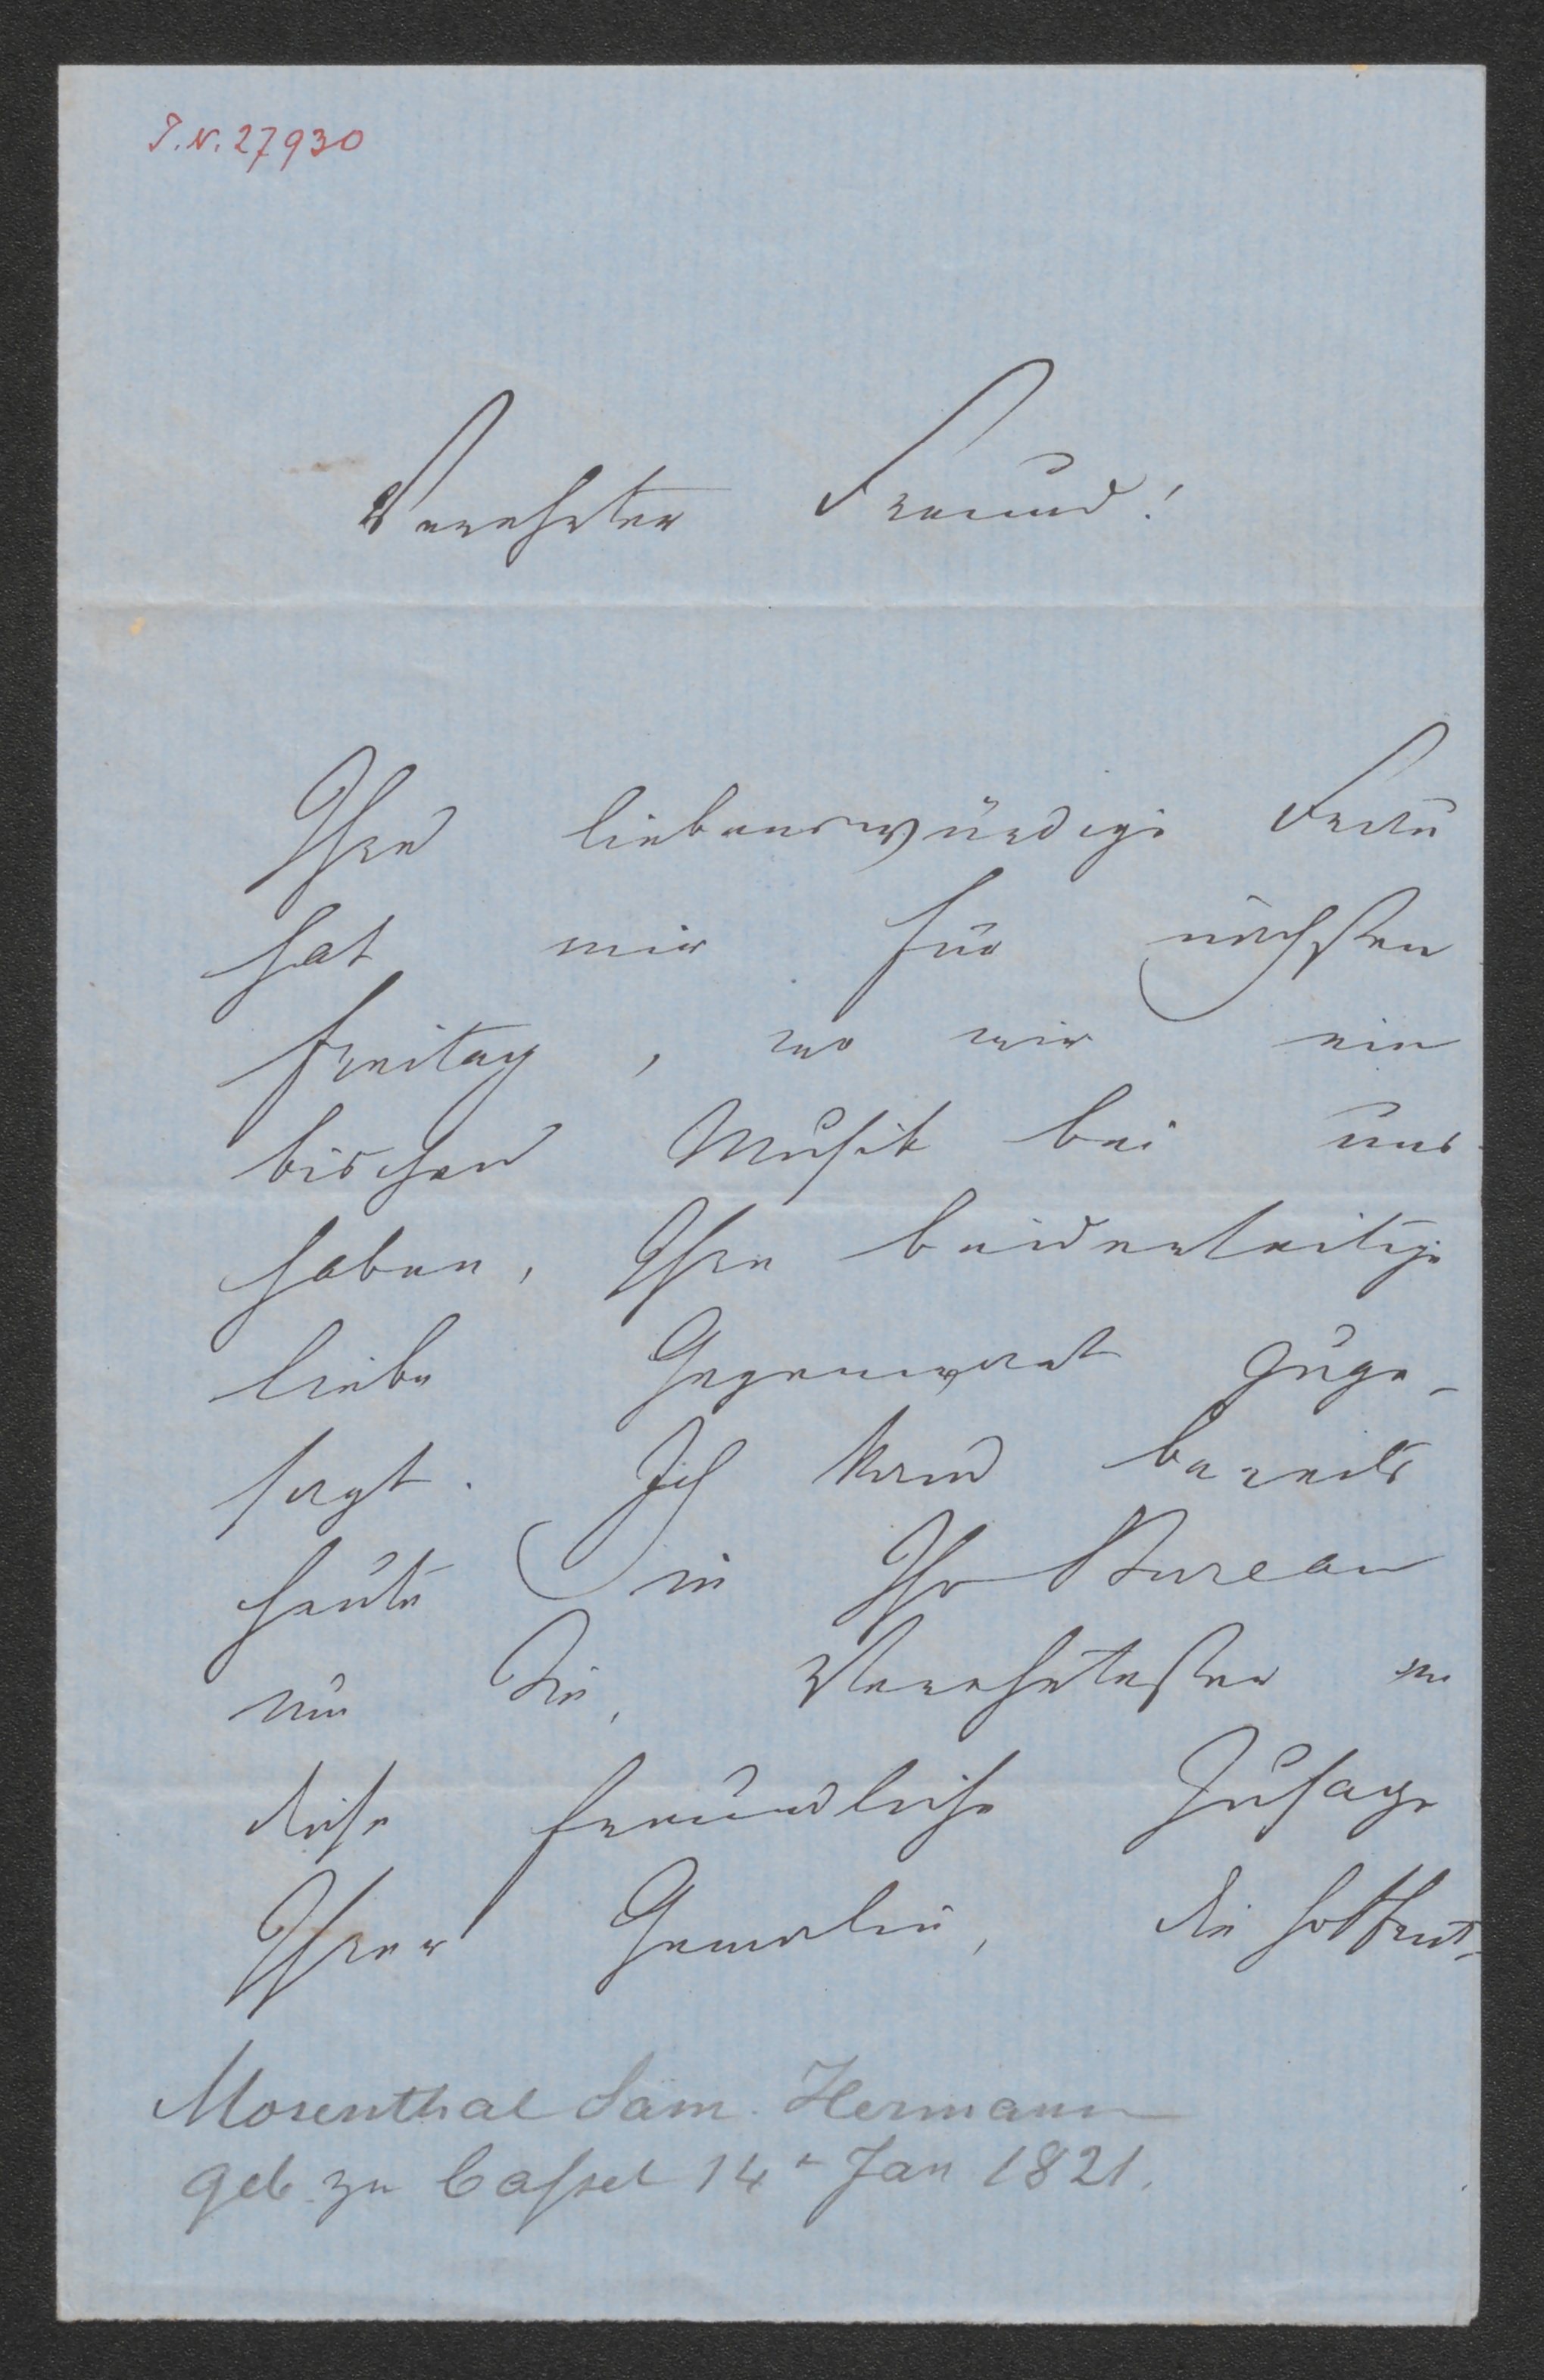 I.N. 27930
Verehrter Freund!
Ihre liebenswürdige Frau
hat mir für nächsten
Freitag, wo wir ein
bischen Musik bei uns
haben, Ihre beiderseitige
liebe Gegenwart zuge-
sagt. Ich kam bereits
heute in Ihr Bureau
um Sie, Verehrtester an
diese freundliche Zusage
Ihrer Gemalin, die hoffent-
Mosenthal Sam. Hermann
geb. zu Cassel 14t Jan 1821.